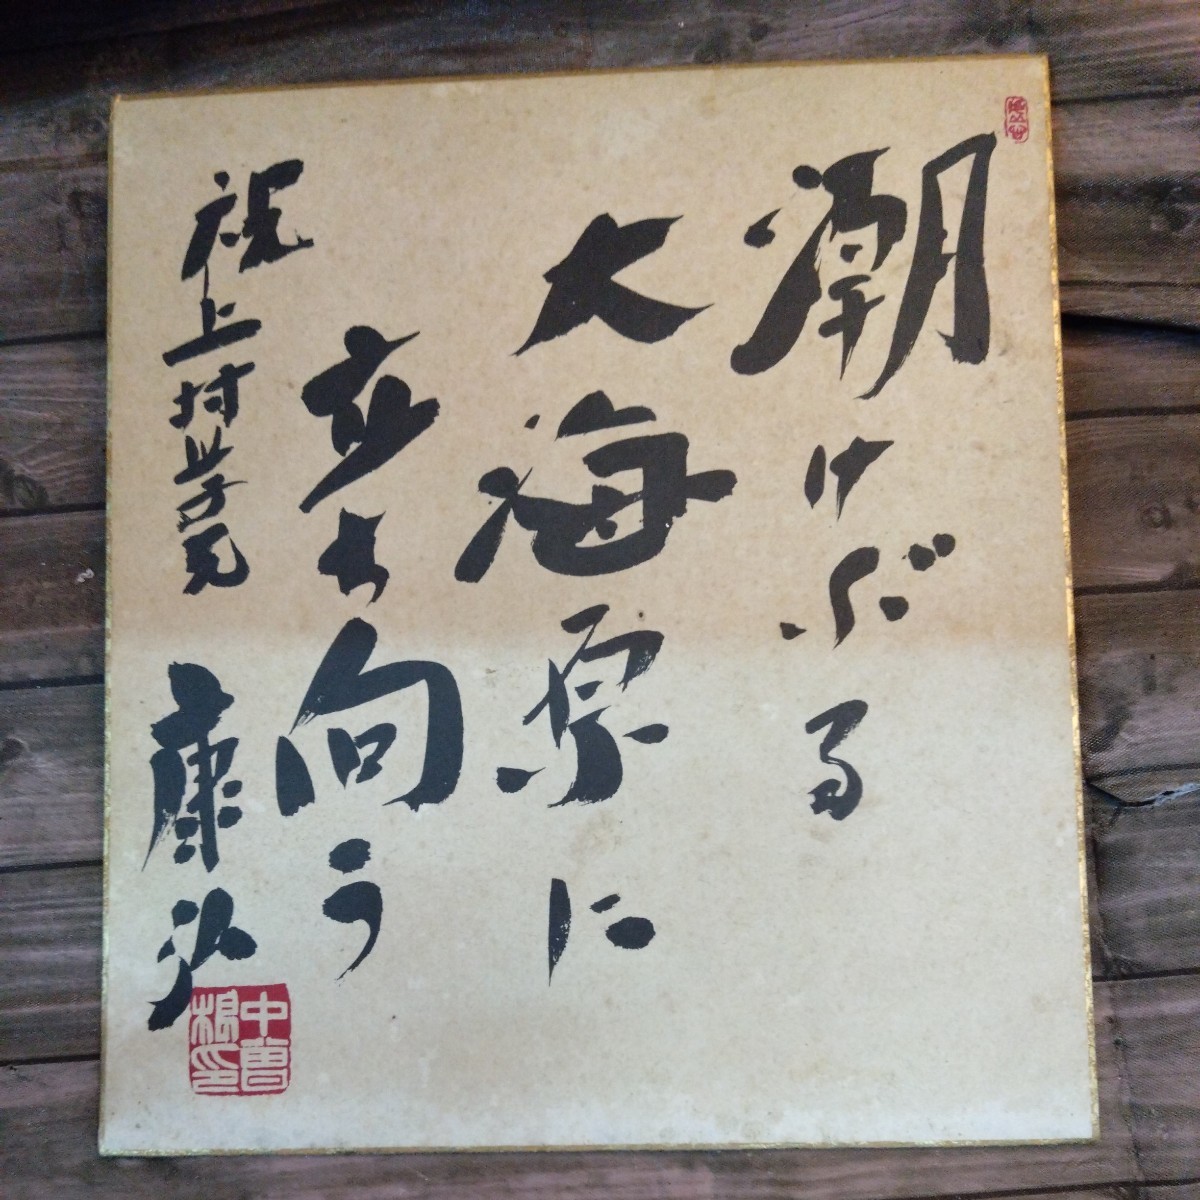 潮けぶる
大海原に
立ち向う
祝上村学兄
康弘
中曽根印